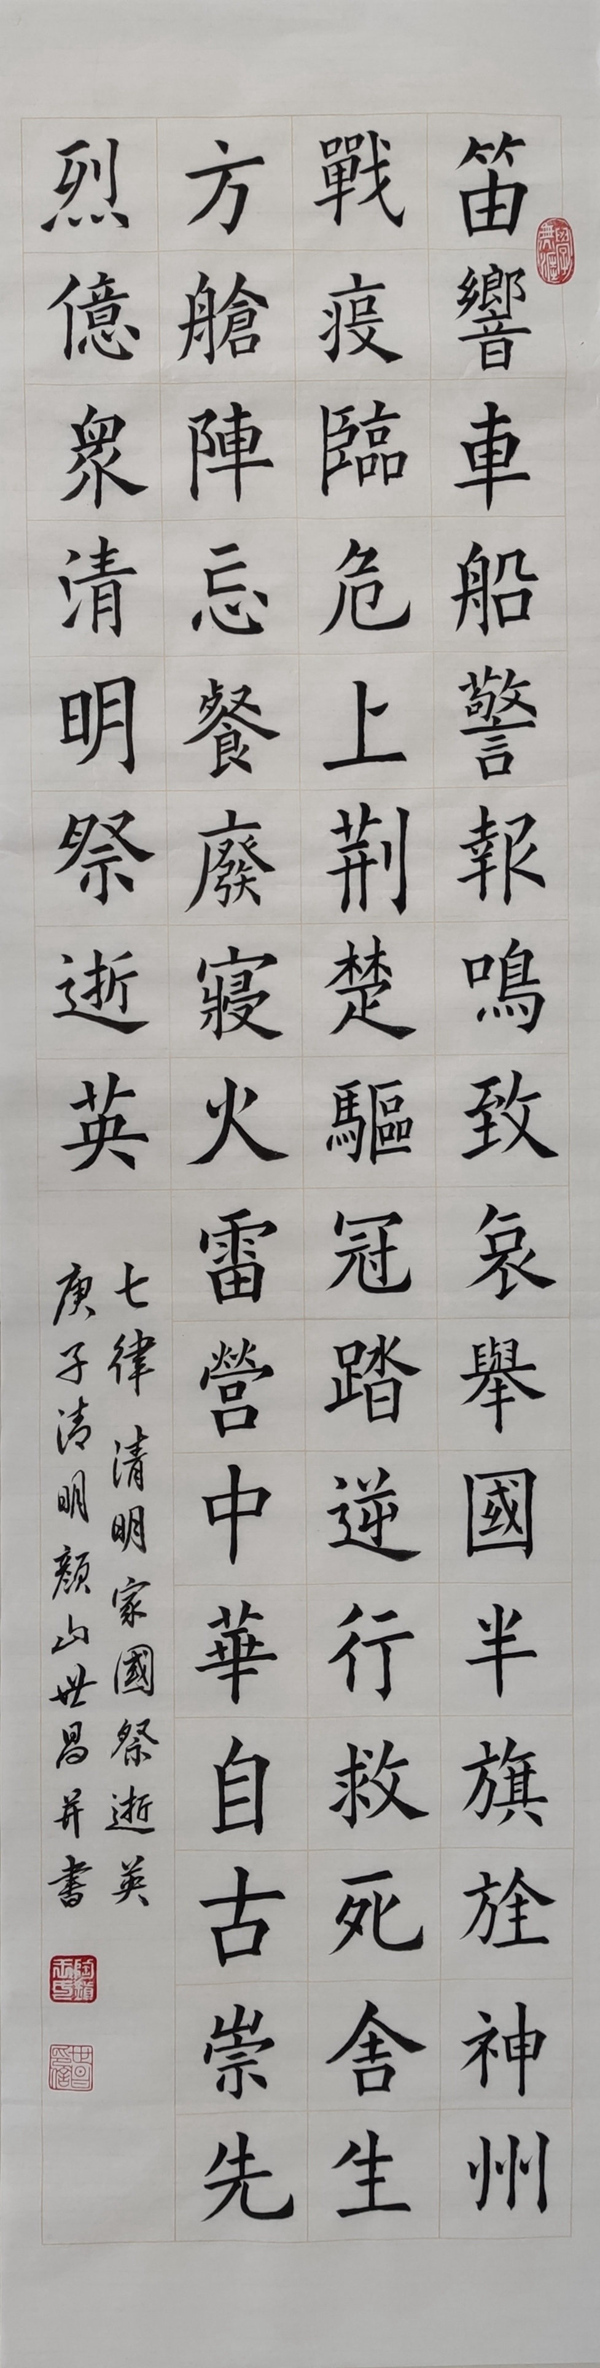 笛響車船警報鳴致哀舉國半旗旌神州
戰疫臨危上荆楚驅冠踏逆行救死舍生
方艙陣忘餐廢寢火雷營中華自古崇先
烈億衆清明祭逝英
七律 清明家國祭逝英
庚子清明顏山世昌并書